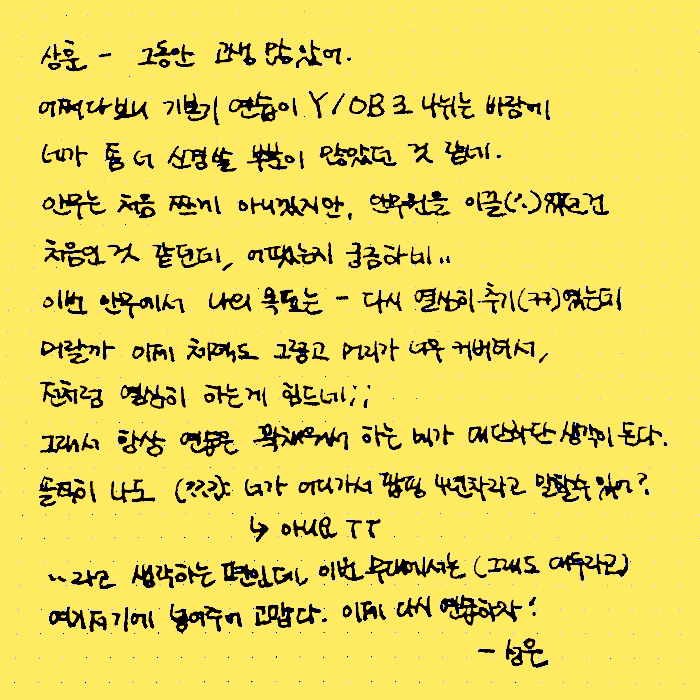 상훈 - 그동안 고생 많았어.
어쩌다보니 기본기 연습이 Y/OB로 나뉘는 바람에
네가 좀 더 신경쓸 부분이 많았던 것 같네.
안무는 처음 짠게 아니겠지만, 안무원을 이끌(^.)었던건
처음인 것 같던데, 어땠는지 궁금하네..
이번 안무에서 나의 목표는 - 다시 열심히 추기(ㅋㅋ)였는데
머랄까 이제 체력도 그렇고 머리가 너무 커버려서,
전처럼 열심히 하는게 힘드네;;
그래서 항상 연습을 꽉채워서 하는 네가 대단하단 생각이 든다.
솔직히 나도 (???): 너가 어디가서 팝핑 4년차라고 말할수있어?
↳ 아니요 ㅜㅜ
..라고 생각하는 편인데, 이번 무대에서는 (그래도 에두라고)
여기저기에 넣어주어 고맙다. 이제 다시 연습하자!
- 성은